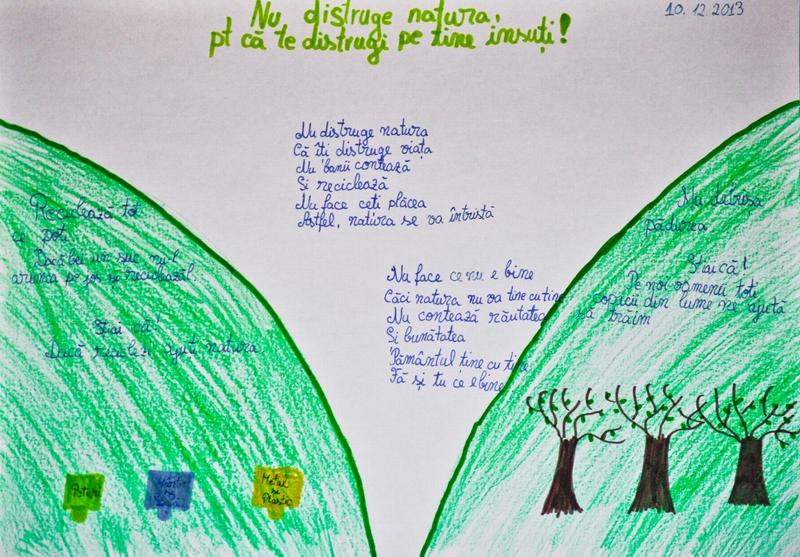 10.12.2013
Nu distruge natura,
pt că te distrugi pe tine insuți!
Nu distruge natura
Că îti distruge viața
Nu banii contează
Și reciclează
Nu face ceti plăcea
Astfel, natura se va întristă
Reciclează tot
ce poti
Dacă bei un suc nu-l
arunca pe jos și reciclează!
Stai că!
Dacă reciclezi ajuți natura
Nu face ce nu e bine
Căci natura nu va tine cu tine
Nu contează răutatea
Și bunătatea
Pământul tine cu tine
Fă și tu ce e bine
Nu defrisa
pădurea
Stai că!
Pe noi oamenii toti
copacii din lume ne ajuta
să traim
Metal
și
Plastic